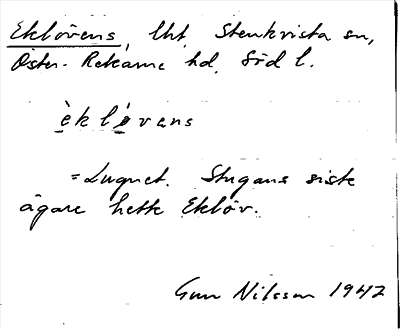 Eklövens, lht, Stenkvista sn,
Öster-Rekarne hd, Södl.
èklø̀vans
= Lugnet. Stugans siste
ägare hette Eklöv.
Gun Nilsson 1947